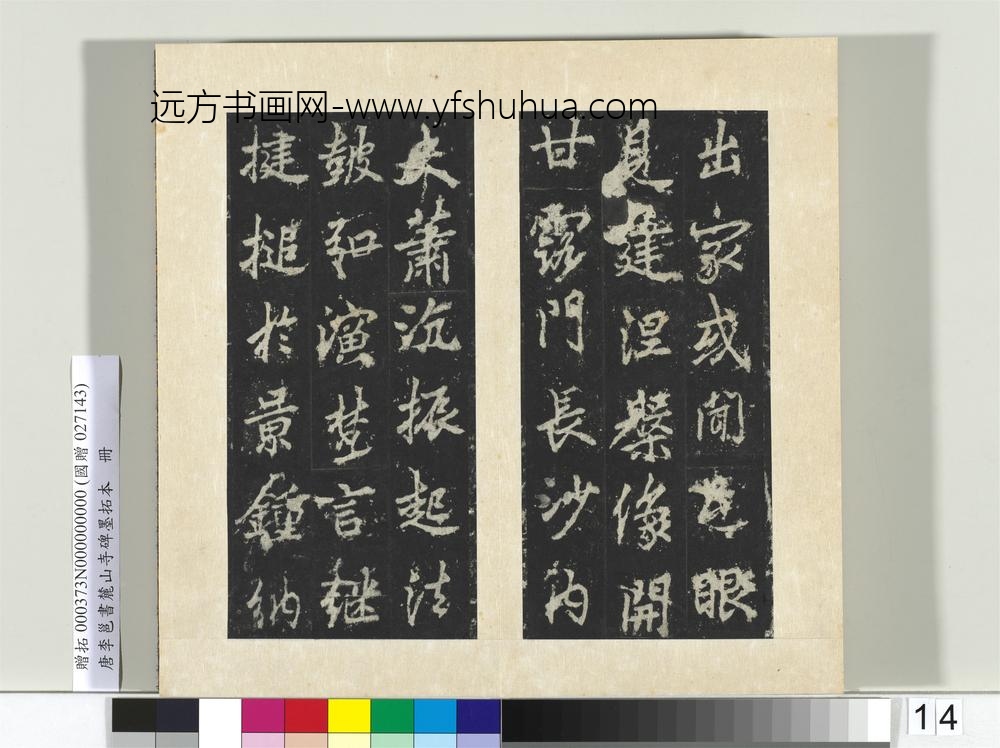 远方书画网-www.yfshuhua.com
出家或聞眼
見建涅槃像開
甘露門長沙内
史蕭沆振起法
皷弘演梵言継
揵槌於景鍾納
贈拓 000373N000000000 (國贈 027143)
唐李邕書麓山寺碑墨拓本 冊
14